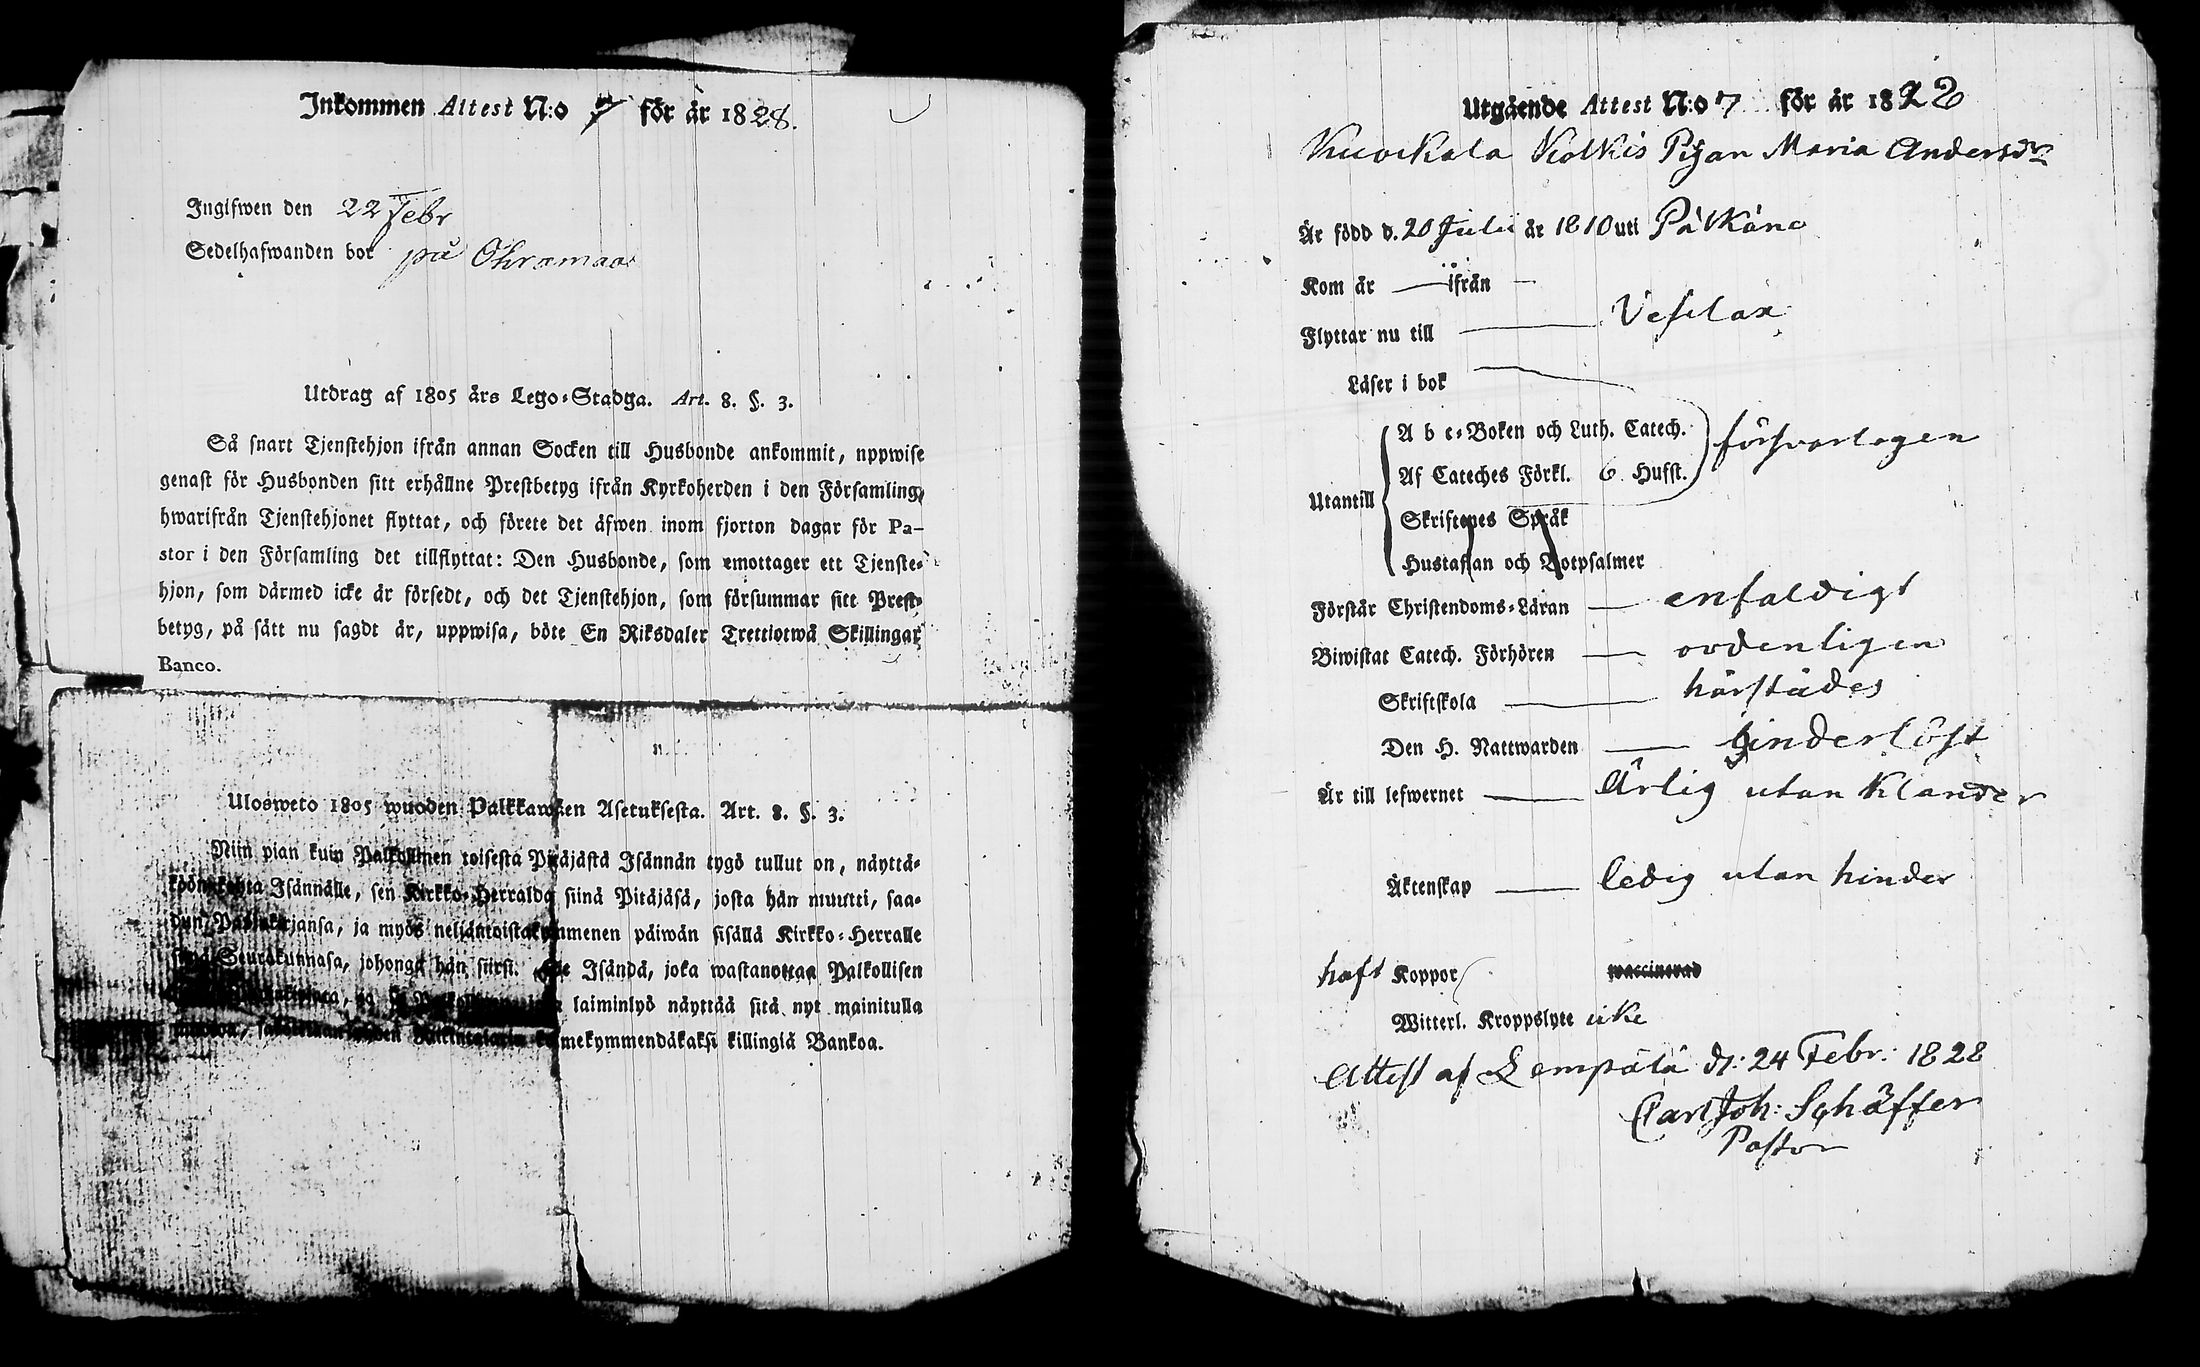 Inkommen Attest N:o 7 för år 1828.
Ingifwen den 22 Febr
Sedelhafwanden bor på Ohramaa
Utdrag af 1805 års Lego-Stadga. Art. 8. §. 3.
Så snart Tjenstehjon ifrån annan Socken till Husbonde ankommit, uppwise
genast för Husbonden sitt erhållne Prestbetyg ifrån Kyrkoherden i den Församling,
hwarifrån Tjenstehjonet flyttat, och förete det äfwen inom fjorton dagar för Pa-
stor i den Församling det tillflyttat: Den Husbonde, som emottager ett Tjenste-
hjon, som därmed icke är försedt, och det Tjenstehjon, som försummar sitt Prest-
betyg, på sätt nu sagdt är, uppwisa, böte En Riksdaler Trettiotwå Skillingar
Banco.
Ulosweto 1805 wuoden Palkkawäen Asetuksesta. Art. 8. §. 3.
Niin pian kuin Palkollinen toisesta Pitäjästä Isännän tygö tullut on, näyttä-
köön kohta Isännälle, sen Kirkko-Herralda siinä Pitäjäsä, josta hän muutti, saa-
dun Papinkirjansa, ja myös neljäntoistakymmenen päiwän sisällä Kirkko-Herralle
siinä Seurakunnasa, johonga hän siirsi. Se Isändä, joka wastanottaa Palkollisen
laiminlyö näyttää sitä nyt mainitulla
kolmekymmendäkaksi killingiä Bankoa.
Utgående Attest N:o 7 för år 1828
Kuockala Kolkis Pigan Maria Andersdr
Är född d. 20 Julii år 1810 uti Pälkäne
Kom år — ifrån —
Flyttar nu till — Vesilax
Läser i bok
Utantill
A b c-Boken och Luth. Catech.
Af Cateches Förkl. 6 Hufst.
försvarlegen
Skriftenes Språk
Hustaflan och Botpsalmer
Förstår Christendoms-Läran — enfaldigt
Biwistat Catech. Förhören — ordenligen
Skriftskola — härstädes
Den H. Nattwarden — hinderlöst
Är till lefwernet — Ärlig utan klander
Äktenskap — ledig utan hinder
haft Koppor waccinerad
Witterl. Kroppslyte icke
Attest af Lempälä d: 24 Febr: 1828
Carl Joh: Schäffer
Pastor